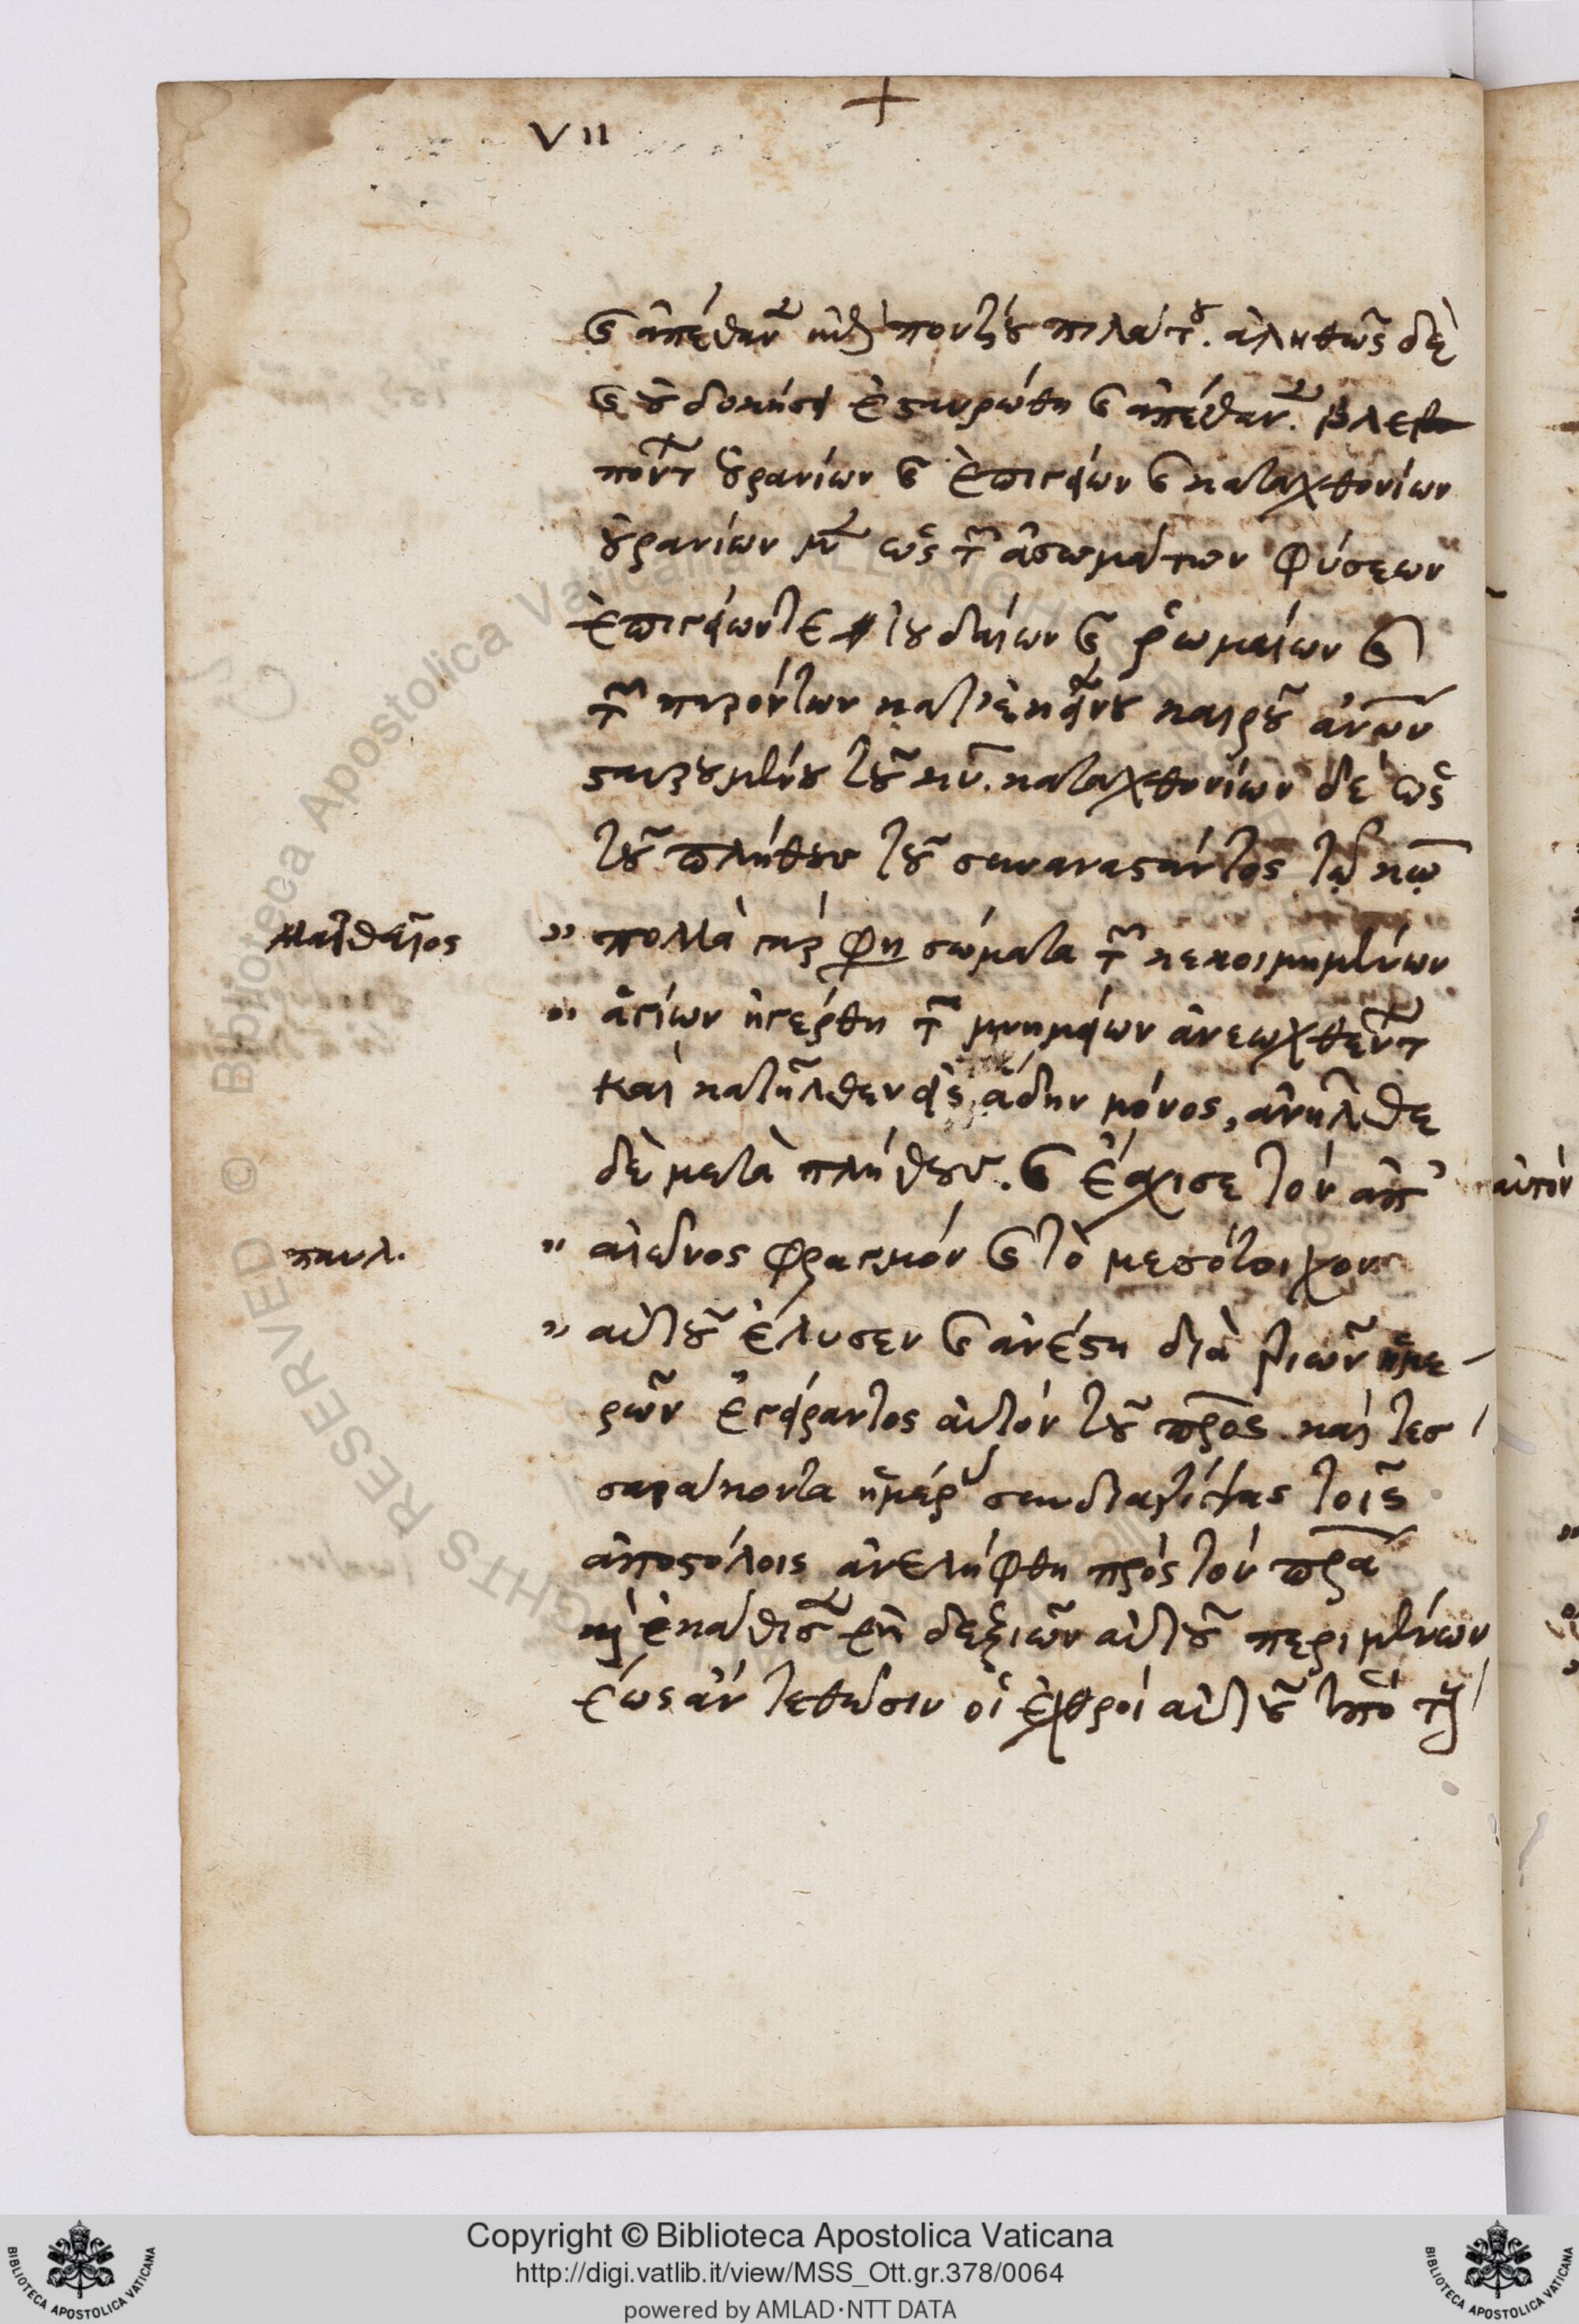 VII
καὶ ἀπέθανεν ἐπὶ ποντίου πιλάτου. ἀληθῶς δὲ
καὶ οὐ δοκήσει ἐσταυρώθη καὶ ἀπέθανεν. βλε
πόντων οὐρανίων καὶ ἐπιγείων καὶ καταχθονίων
οὐρανίων μὲν ὡς τῶν ἀσωμάτων φύσεων
ἐπιγείων τε ἰουδαίων καὶ ῥωμαίων καὶ
τῶν παρόντων κατ' ἐκείνου καιροῦ ἀνων
σταυρουμένου τοῦ κυ. καταχθονίων δὲ ὡς
τοῦ πλήθους τοῦ συναναστάντος τῷ κω
ματθαῖος
πολλὰ γάρ φη σώματα τῶν κεκοιμημένων
ἁγίων ἠγέρθη τῶν μνημείων ἀνεωχθέντων
καὶ κατῆλθεν εἰς ἅδην μόνος, ἀνῆλθε
δὲ μετὰ πλήθους. καὶ ἔσχισε τὸν ἀπ'
παυλ.
αἰῶνος φραγμόν καὶ τὸ μεσότοιχον
αὐτοῦ ἔλυσεν καὶ ἀνέστη διὰ τριῶν ἡμε
ρῶν ἐγείραντος αὐτόν τοῦ προς. καὶ τεσ
σαράκοντα ἡμέρας συνδιατρίψας τοῖς
ἀποστόλοις ἀνελήφθη πρὸς τὸν πρα
καὶ ἐκάθισεν ἐκ δεξιῶν αὐτοῦ περιμένων
ἕως ἂν τεθῶσιν οἱ ἐχθροί αὐτοῦ ὑπὸ τοὺς
αὐτόν
Biblioteca Apostolica Vaticana
RIGHTS RESERVED ©
Copyright © Biblioteca Apostolica Vaticana
http://digi.vatlib.it/view/MSS_Ott.gr.378/0064
powered by AMLAD·NTT DATA
BIBLIOTECA APOSTOLICA VATICANA
BIBLIOTECA APOSTOLICA VATICANA